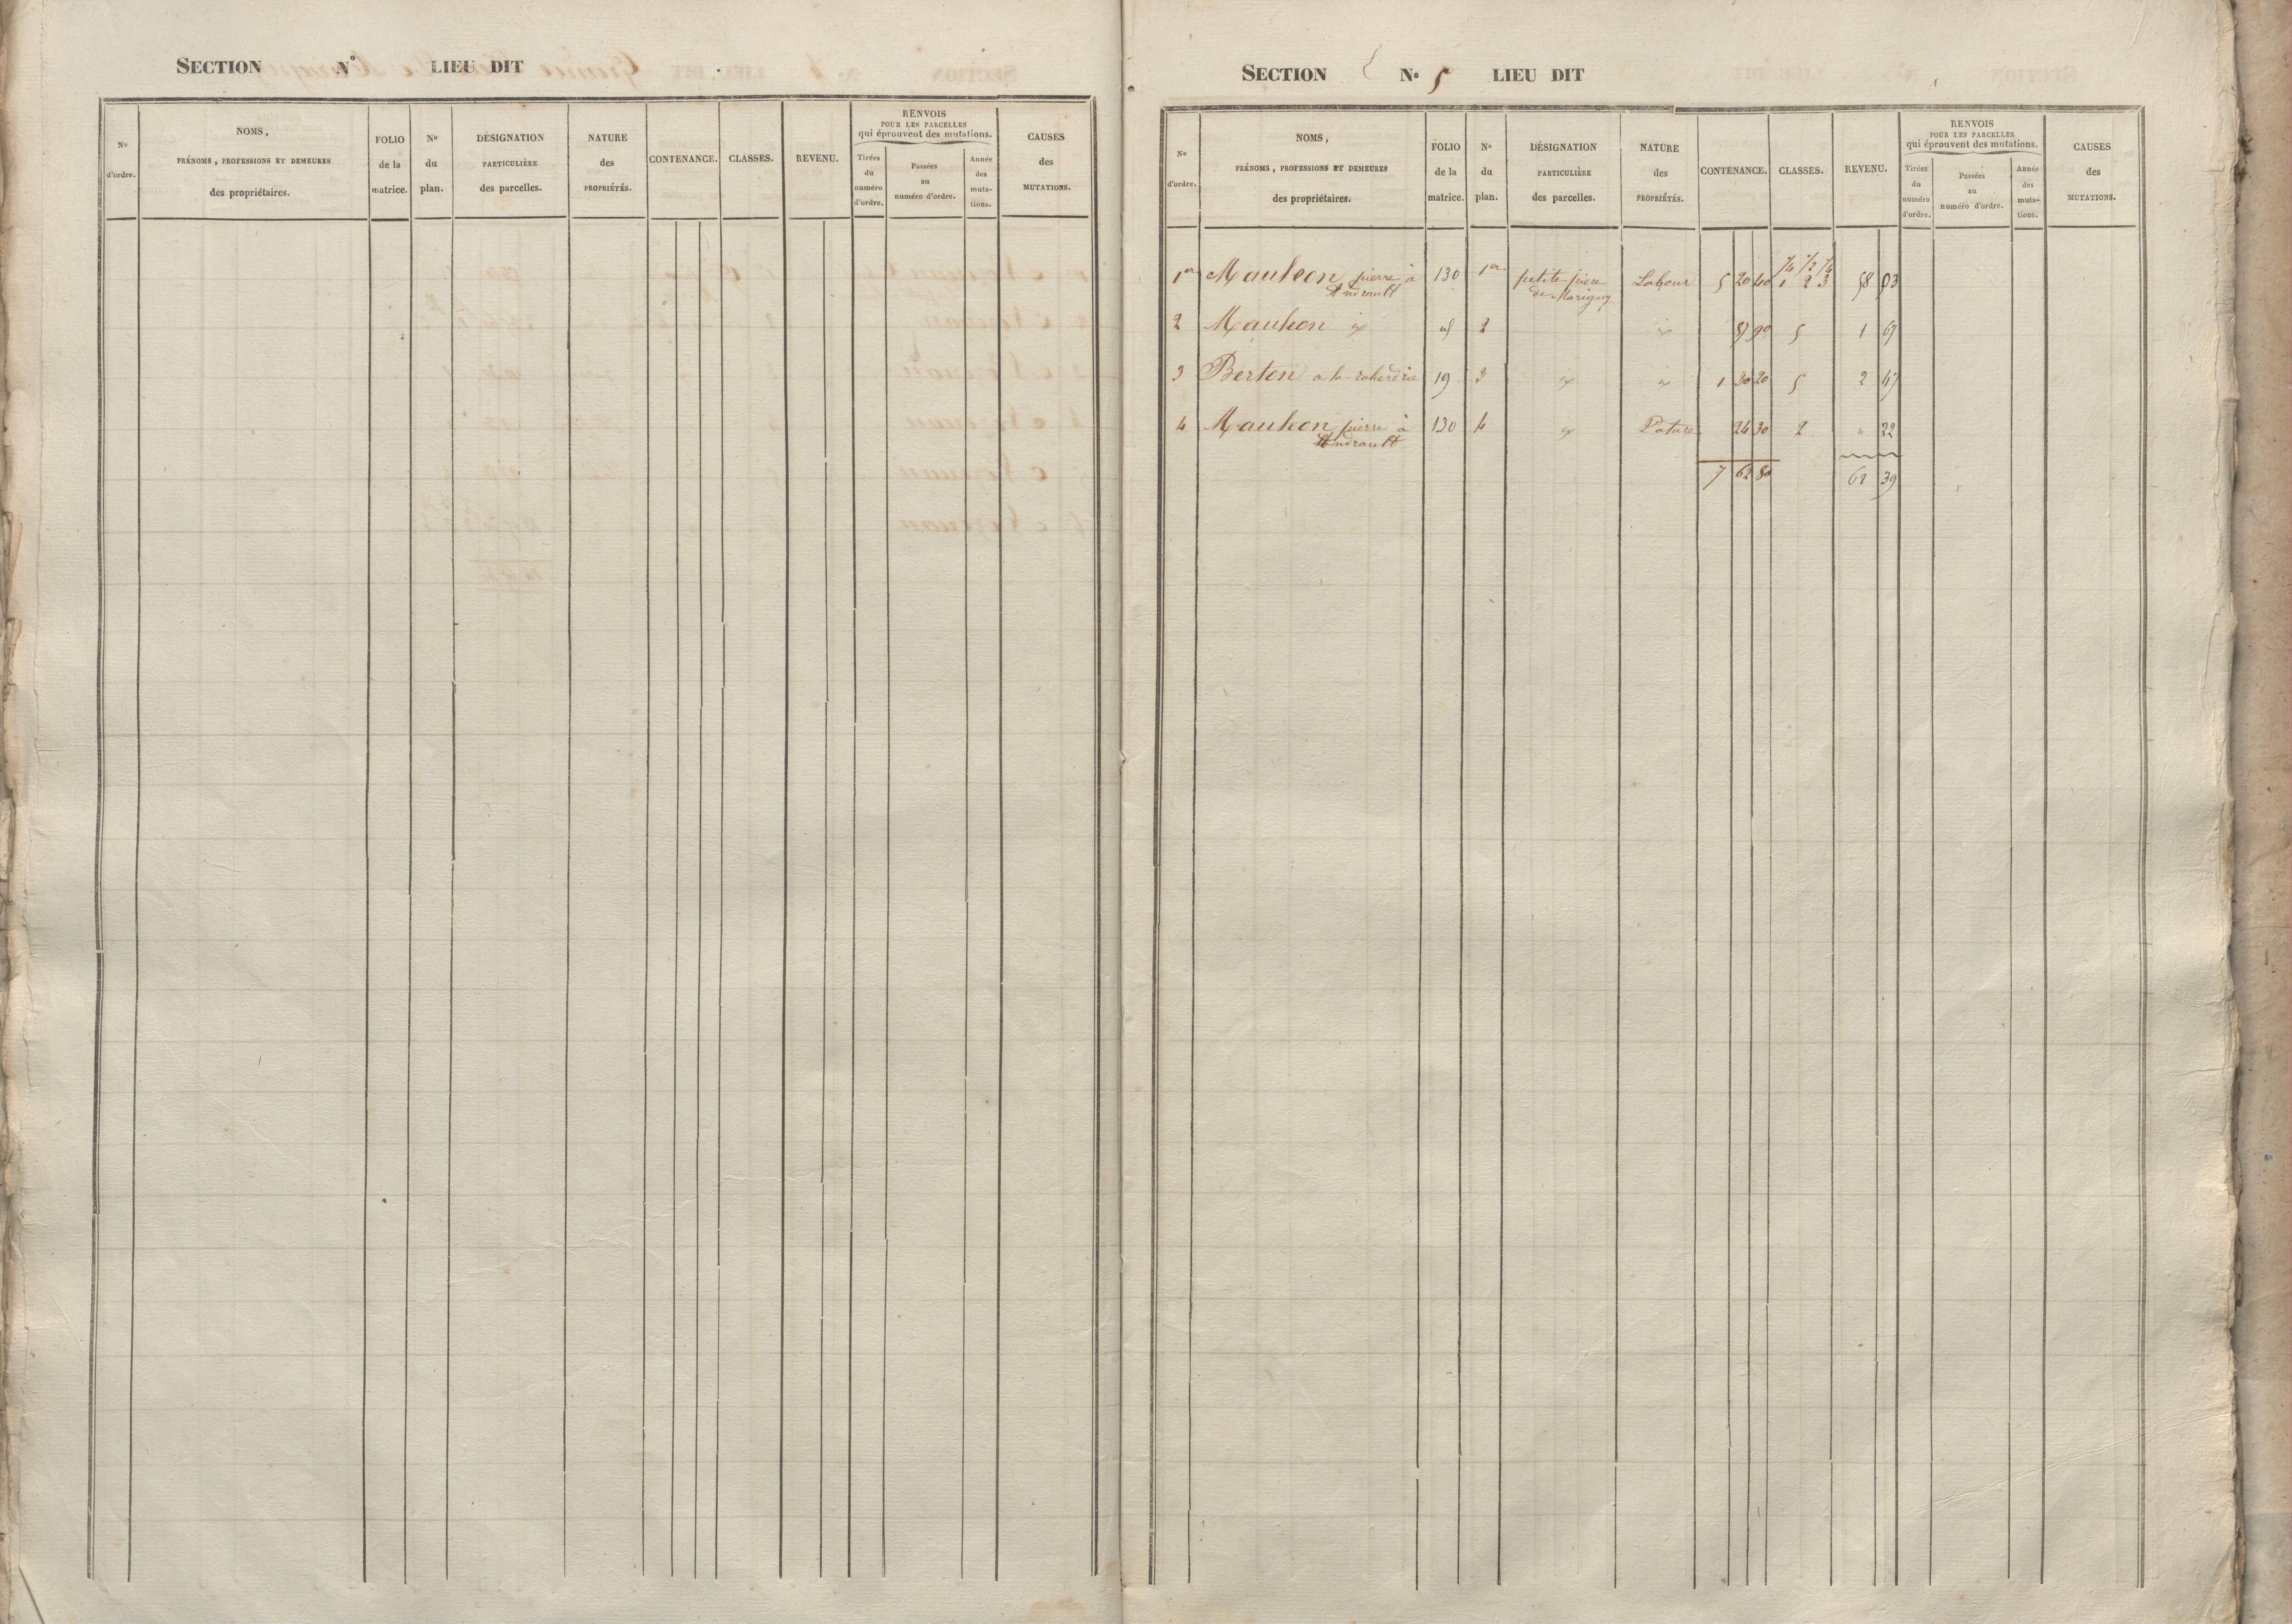 SECTION N° LIEU DIT
N° d'ordre.
NOMS,
PRÉNOMS, PROFESSIONS ET DEMEURES
des propriétaires.
FOLIO
de la
matrice.
N°
du
plan.
DÉSIGNATION
PARTICULIÈRE
des parcelles.
NATURE
des
PROPRIÉTÉS.
CONTENANCE.
CLASSES.
REVENU.
RENVOIS
POUR LES PARCELLES
qui éprouvent des mutations.
Tirées
du
numéro
d'ordre.
Passées
au
numéro d'ordre.
Année
des
muta-
tions.
CAUSES
des
MUTATIONS.
SECTION N° 5 LIEU DIT
N°
d'ordre.
NOMS,
PRÉNOMS, PROFESSIONS ET DEMEURES
des propriétaires.
FOLIO
de la
matrice.
N°
du
plan.
DÉSIGNATION
PARTICULIÈRE
des parcelles.
NATURE
des
PROPRIÉTÉS.
CONTENANCE.
CLASSES.
REVENU.
RENVOIS
POUR LES PARCELLES
qui éprouvent des mutations.
Tirées
du
numéro
d'ordre.
Passées
au
numéro d'ordre.
Année
des
muta-
tions.
CAUSES
des
MUTATIONS.
1er Mauleon pierre à 130 1er petite pièce Labour 5 20 40 1/4 1/2 1/4 58 03
Andrault de Marigny 1 2 3
2 Mauleon id id 2 id 87 90 5 1 67
3 Berton a la 19 3 id id 1 30 20 5 2 47
4 Mauleon pierre à 130 4 id Pature 24 30 2 " 22
Andrault
7 62 80 62 39